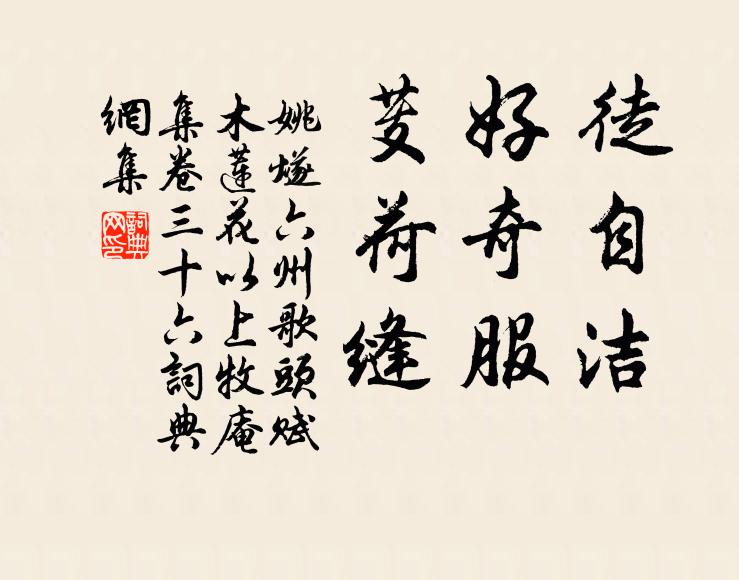 徒自洁
好奇服
芰荷缝
姚燧六州歌頭賦
木蓮花以上牧庵
集卷三十六詞典
網集
詞典網印